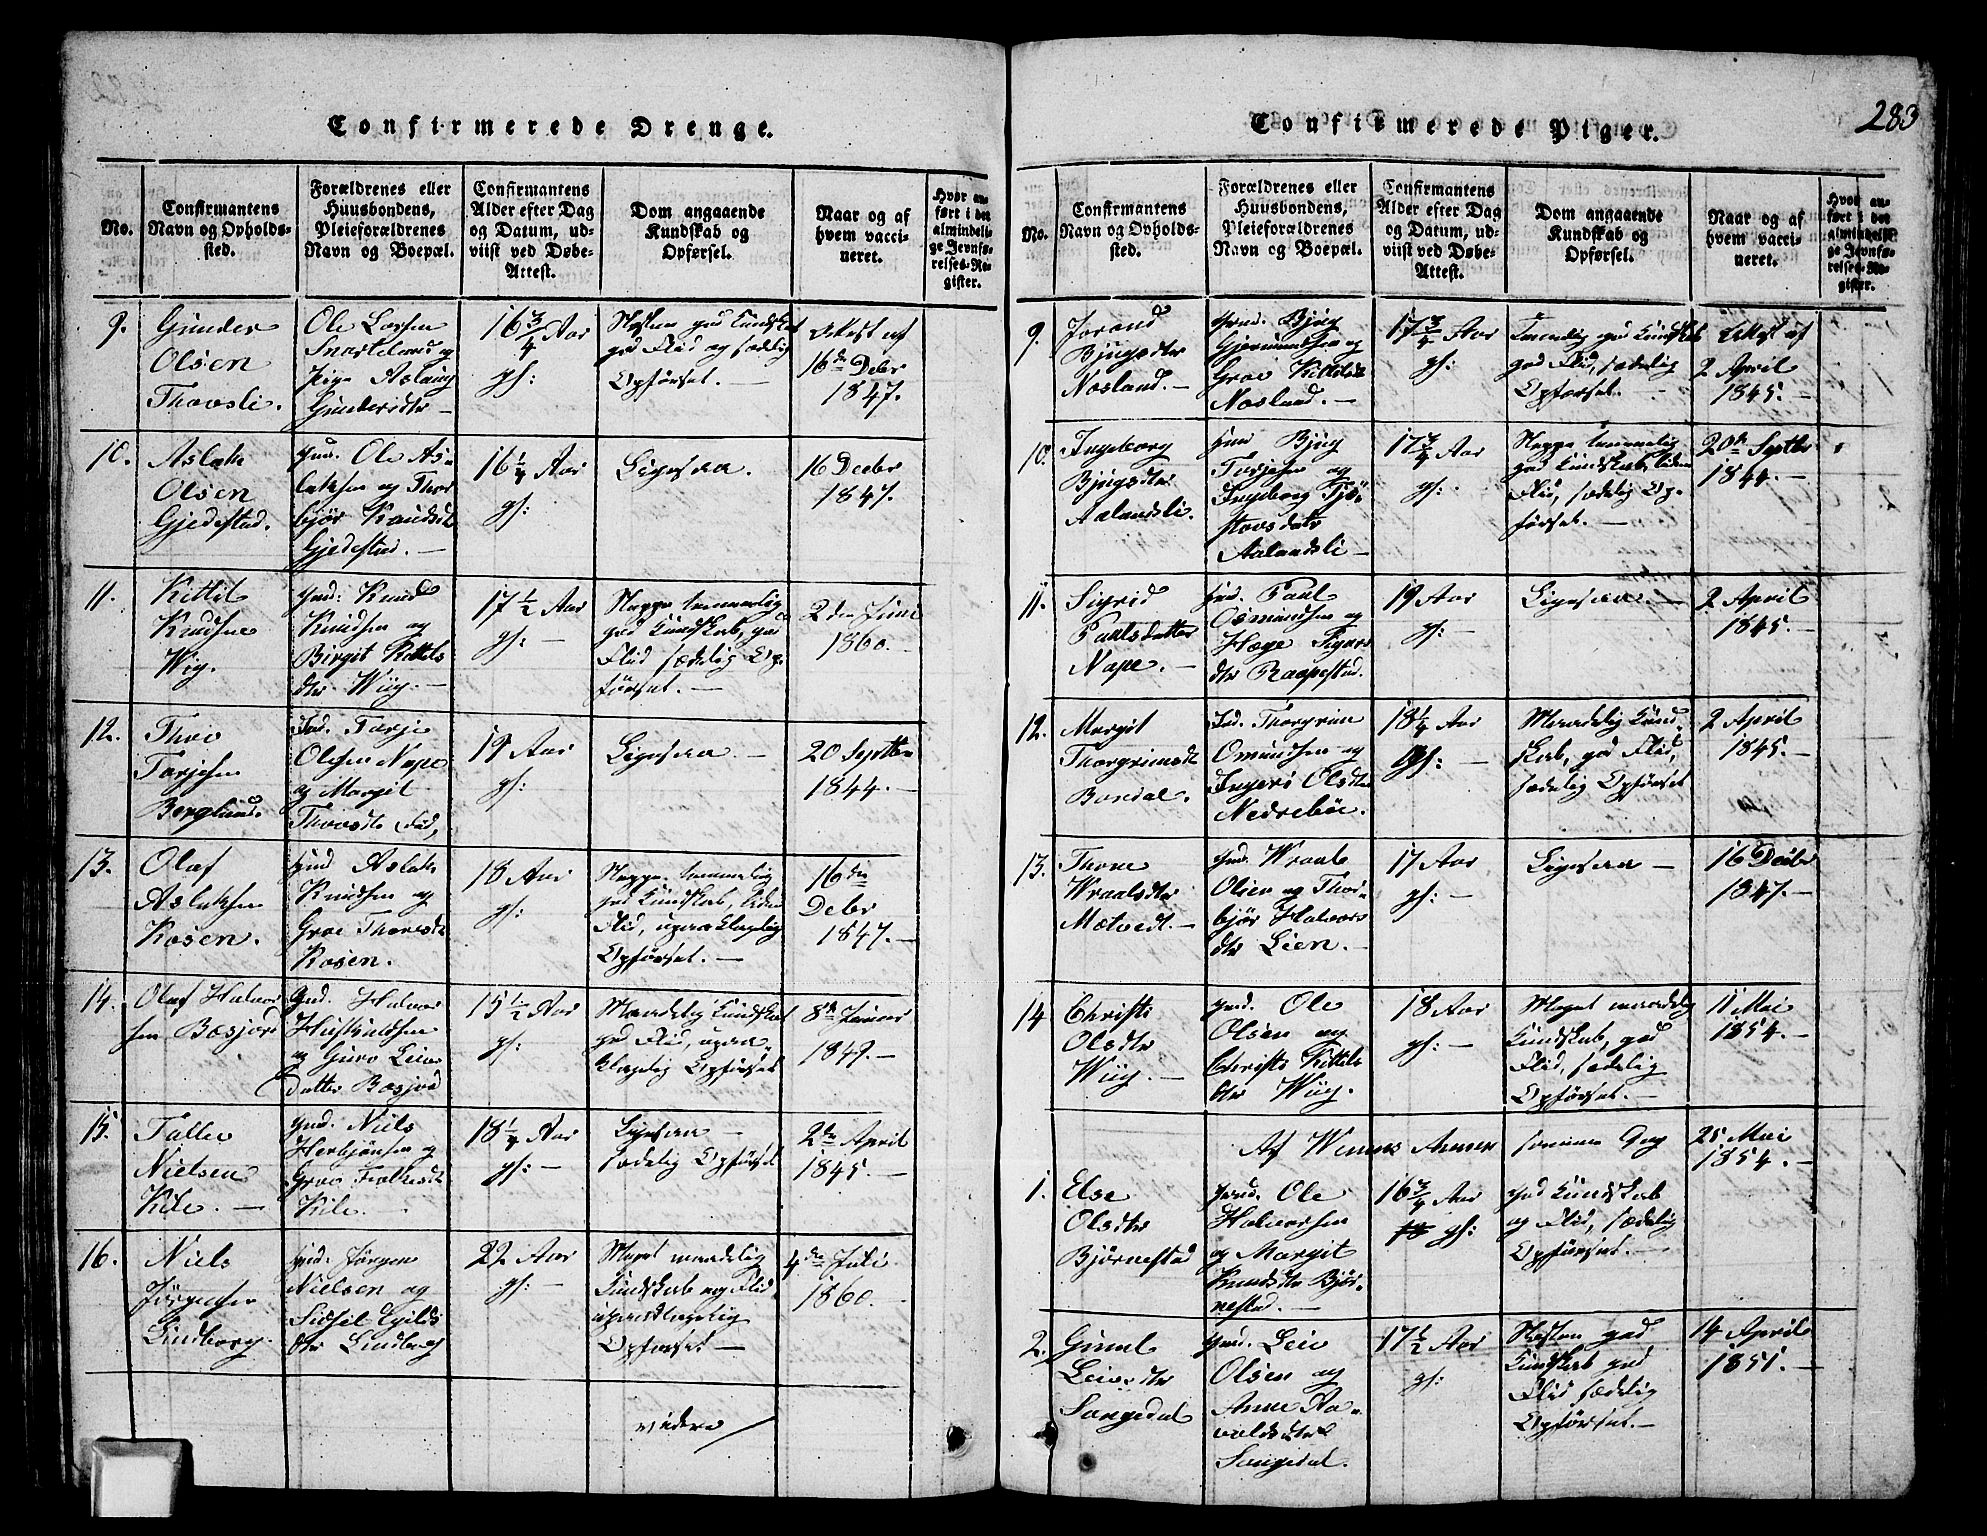 283
Confirmerede Drenge.
No.
Confirmantens
Navn og Opholds-
sted.
Forældrenes eller
Huusbondens,
Pleieforældrenes
Navn og Boepæl.
Confirmantens
Alder efter Dag
og Datum, ud-
viist ved Døbe-
Attest.
Dom angaaende
Kundskab og
Opførsel.
Naar og af
hvem vacci-
neret.
Hvor an-
ført i det
almindeli-
ge Jevnfø-
relses-Re-
gister.
9.
Gunder
Olsen
Thovsli.
Ole Larsen
og
Pige Aslaug
Gundersdtr
16 3/4 Aar
gf:
Næsten god Kundskab
god Flid og sædelig
Opførsel.
Attest af
16de Decbr
1847.
10.
Aslak
Olsen
Gjedestad.
Gmd. Ole As-
laksen og Thor-
bjør Knudsdtr
Gjedestad.
16 1/4 Aar
gf:
Ligesaa.
16 Decbr
1847.
11.
Kittil
Knudsen
Wig.
Gmd. Knud
Knudsen og
Birgit Kittels
dtr Wiig.
17 1/2 Aar
gf:
Neppe temmelig
god Kundskab, god
Flid sædelig Op-
førsel.
2den Juni
1860.
12.
Thov
Tarjesen
Berglund.
Ind. Tarje
Olsen Nape
og Margit
Thovsdtr
19 Aar
gf:
Ligesaa
20 Septbr
1844.
13.
Olaf
Aslaksen
Rosen.
Gmd Aslak
Knudsen og
Groe Thoresdtr
Rosen.
18 Aar
gf:
Neppe temmelig
god Kundskab, liden
Flid, upaaklagelig
Opførsel.
16de
Decbr
1847.
14.
Olaf Halvor
sen Bæsjord
Gmd. Halvor
og Guro Leivs
datter Bæsjord
15 1/2 Aar
gf:
Maadelig Kundskab
god Flid, upaa-
klagelig Opførsel
8de Januar
1849.
15.
Tallev
Nielsen
Kile.
Gmd. Niels
Herbjønsen og
Groe
Kile.
18 1/4 Aar
gf:
Ligesaa
sædelig Opførsel
2den April
1845.
16.
Niels
Jørgensen
Lindborg.
Gmd. Jørgen
Nielsen og
Sidsel Egilds
dtr Lindborg
22 Aar
gf:
Meget maadelig
Kundskab og Flid,
upaaklagelig
Opførsel
4de Juli
1860.
videre
Confirmerede Piger.
No.
Confirmantens
Navn og Opholds-
sted.
Forældrenes eller
Huusbondens,
Pleieforældrenes
Navn og Boepæl.
Confirmantens
Alder efter Dag
og Datum, ud-
viist ved Døbe-
Attest.
Dom angaaende
Kundskab og
Opførsel.
Naar og af
hvem vacci-
neret.
Hvor an-
ført i det
almindeli-
ge Jevnfø-
relses-Re-
gister.
9.
Jorand
Bjugsdtr
Nosland.
Gmd. Bjug
Gjermundsen og
Groe Kittilsdtr
Nosland.
17 3/4 Aar
gf:
Temmelig god Kundskab
god Flid, sædelig
Opførsel.
Attest af
2 April
1845.
10.
Ingeborg
Bjugsdtr
Aalandsli.
Hmd Bjug
Tarjesen og
Ingeborg Tjø-
stovsdatr
Aalandsli
17 3/4 Aar
gf:
Neppe temmelig
god Kundskab, liden
Flid, sædelig Op-
førsel.
20de Septbr
1844.
11.
Sigrid
Paulsdatter
Nape.
Hmd. Paul
Osmundsen og
Hæge Sigurs
dtr Raapestad.
19 Aar
gf:
Ligesaa.
2 April
1845.
12.
Margit
Thorgrimsdtr
Bondal.
Ind. Thorgrim
Omundsen og
Ingerø Olsdtr
Nedrebøe.
18 1/4 Aar
gf:
Maadelig Kund-
skab, god Flid,
sædelig Opførsel
2 April
1845.
13.
Thone
Wraalsdtr
Mætvedt.
Gmd. Wraal
Olsen og Thor-
bjør Halvors
dtr Lien.
17 Aar
gf:
Ligesaa
16 Decbr
1847.
14
Christi
Olsdtr
Wiig.
Gmd. Ole
Olsen og
Christi Kittels
dtr Wiig.
18 Aar
gf:
Meget maadelig
Kundskab, god
Flid, sædelig
Opførsel.
11 Mai
1854.
Af Winnes Annex samme Dag
1.
Else
Olsdtr
Bjørnestad
Gmd. Ole
Halvorsen
og Margit
Knudsdtr Bjør-
nestad.
16 3/4 Aar
gf:
god Kundskab
og Flid, sædelig
Opførsel.
25 Mai
1854.
2.
Gunil
Leivsdtr
Sangedal
Gmd. Leiv
Olsen og
Anne Aa-
voldsdtr
Sangedal.
17 1/2 Aar
gf:
Næsten god
Kundskab god
Flid sædelig
Opførsel.
14 April
1851.